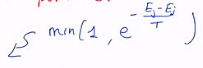 min(1, e^{-\frac{E_j - E_i}{T}})